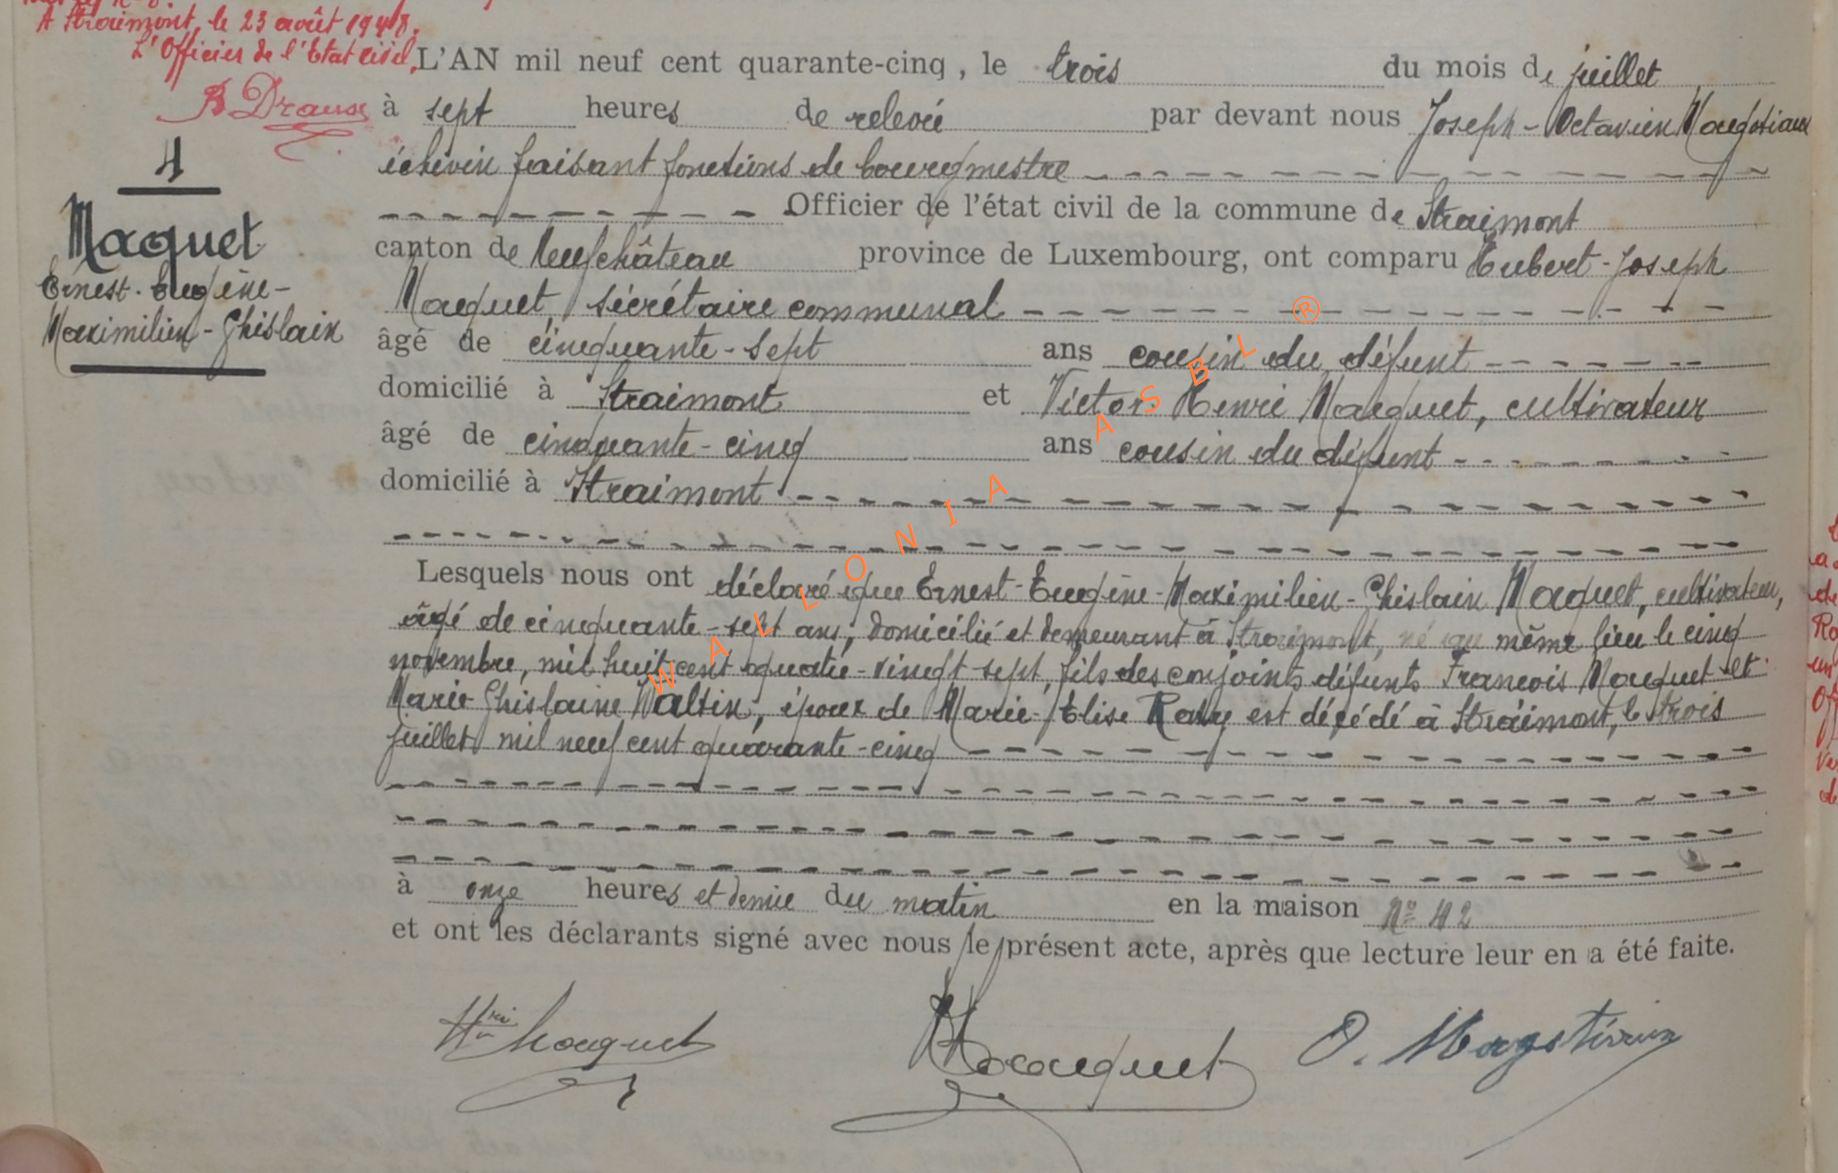 A Straimont, le 23 août 1948.
L'Officier de l'Etat civil,
4
Maquet
Ernest-Eugène-
Maximilien-Ghislain
L'AN mil neuf cent quarante-cinq, le trois du mois de juillet
à sept heures de relevée par devant nous Joseph-Octavien
échevin faisant fonctions de bourgmestre
Officier de l'état civil de la commune de Straimont
canton de Neufchâteau province de Luxembourg, ont comparu Hubert-Joseph
Maquet, sécrétaire communal
âgé de cinquante-sept ans cousin du défunt
domicilié à Straimont et Victor Henri Maquet, cultivateur
âgé de cinquante-cinq ans cousin du défunt
domicilié à Straimont
Lesquels nous ont déclaré que Ernest-Eugène-Maximilien-Ghislain Maquet, cultivateur,
âgé de cinquante-sept ans, domicilié et demeurant à Straimont, né au même lieu le cinq
novembre, mil huit cent quatre-vingt sept, fils des conjoints défunts François Maquet et
Marie Ghislaine Waltin, époux de Marie-Elise est décédé à Straimont, le trois
juillet mil neuf cent quarante-cinq
à onze heures et demie du matin en la maison N° 42
et ont les déclarants signé avec nous le présent acte, après que lecture leur en a été faite.
Hri Maquet
HMaquet
WALLONIA ASBL ®